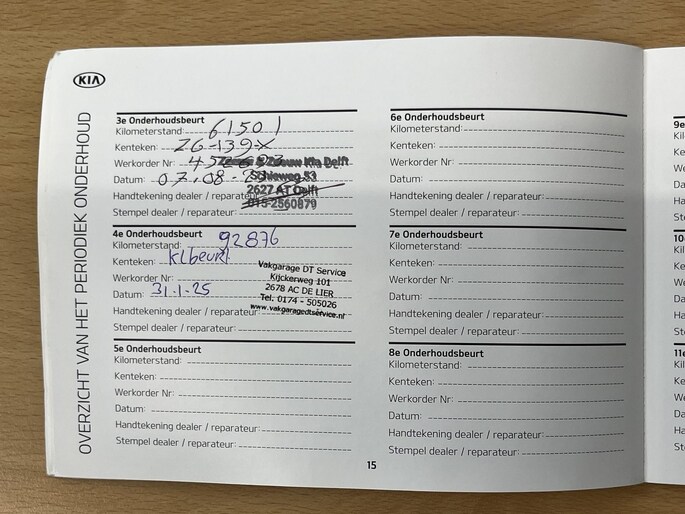 KIA
OVERZICHT VAN HET PERIODIEK ONDERHOUD
3e Onderhoudsbeurt
Kilometerstand: 61501
Kenteken: ZG-139-X
Werkorder Nr:
Zeeuw & Zeeuw Kia Delft
Datum: 07.08.
Schieweg 53
2627 AT Delft
Handtekening dealer / reparateur:
015-2560879
Stempel dealer / reparateur:
4e Onderhoudsbeurt
Kilometerstand: 92876
Kenteken: kl beurt
Werkorder Nr:
Datum: 31-1-25
Handtekening dealer / reparateur:
Stempel dealer / reparateur:
Vakgarage DT Service
Kijckerweg 101
2678 AC DE LIER
Tel. 0174 - 505026
www.vakgaragedtservice.nl
5e Onderhoudsbeurt
Kilometerstand:
Kenteken:
Werkorder Nr:
Datum:
Handtekening dealer / reparateur:
Stempel dealer / reparateur:
6e Onderhoudsbeurt
Kilometerstand:
Kenteken:
Werkorder Nr:
Datum:
Handtekening dealer / reparateur:
Stempel dealer / reparateur:
7e Onderhoudsbeurt
Kilometerstand:
Kenteken:
Werkorder Nr:
Datum:
Handtekening dealer / reparateur:
Stempel dealer / reparateur:
8e Onderhoudsbeurt
Kilometerstand:
Kenteken:
Werkorder Nr:
Datum:
Handtekening dealer / reparateur:
Stempel dealer / reparateur:
15
9e
10
11e